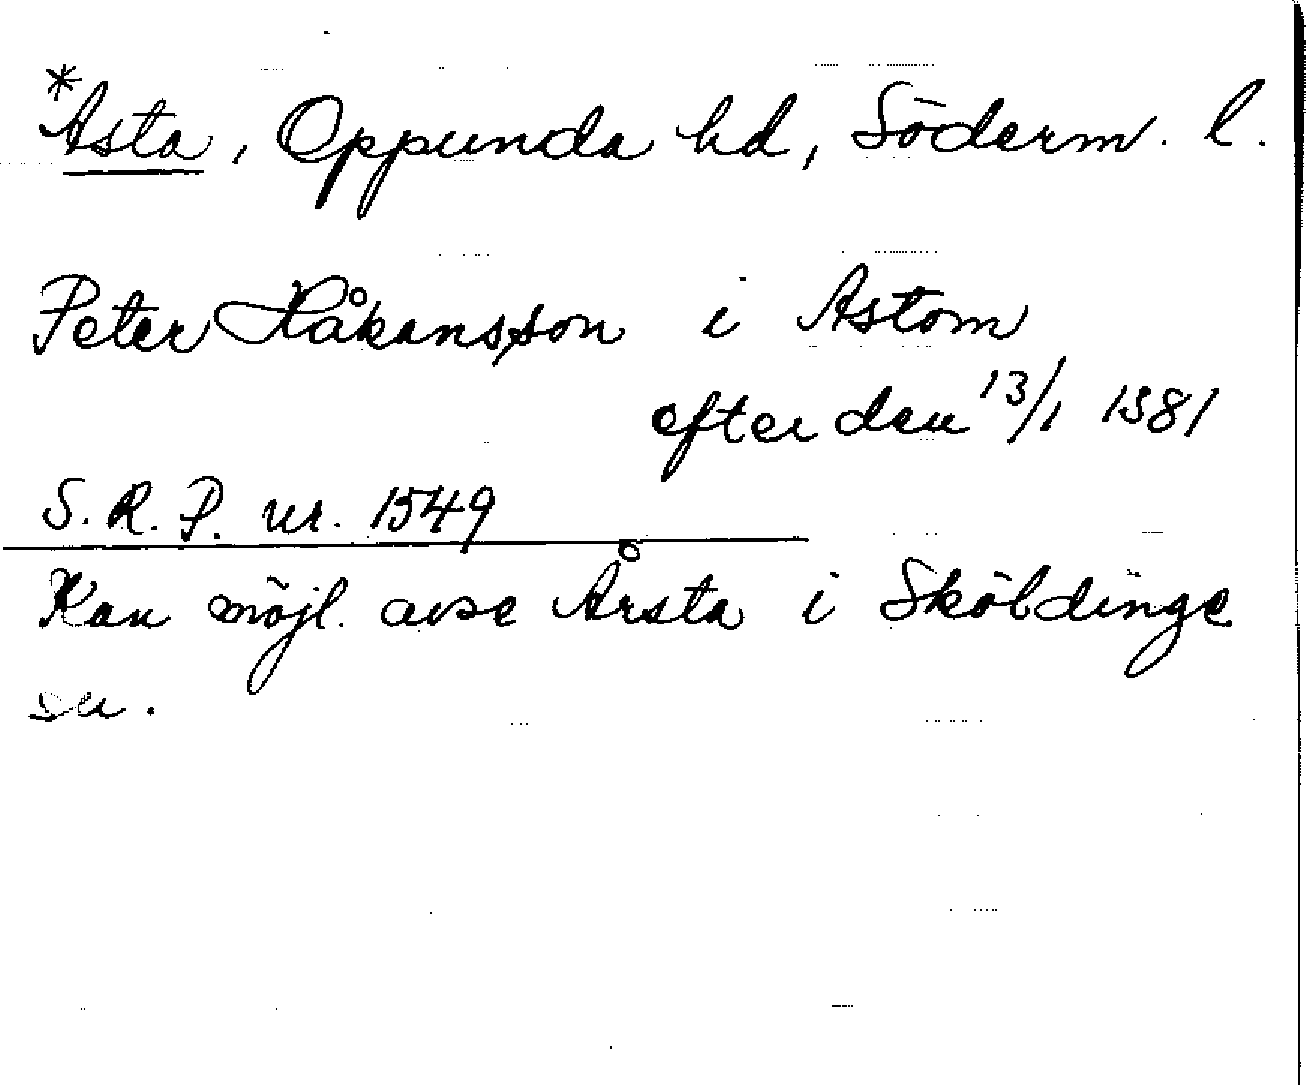 *Asta, Oppunda hd, Söderm. l.
Peter Håkansson i Astom
efter den 13/1 1381
S. R. P. nr. 1549
Kan möjl. avse Årsta i Sköldinge
sn.